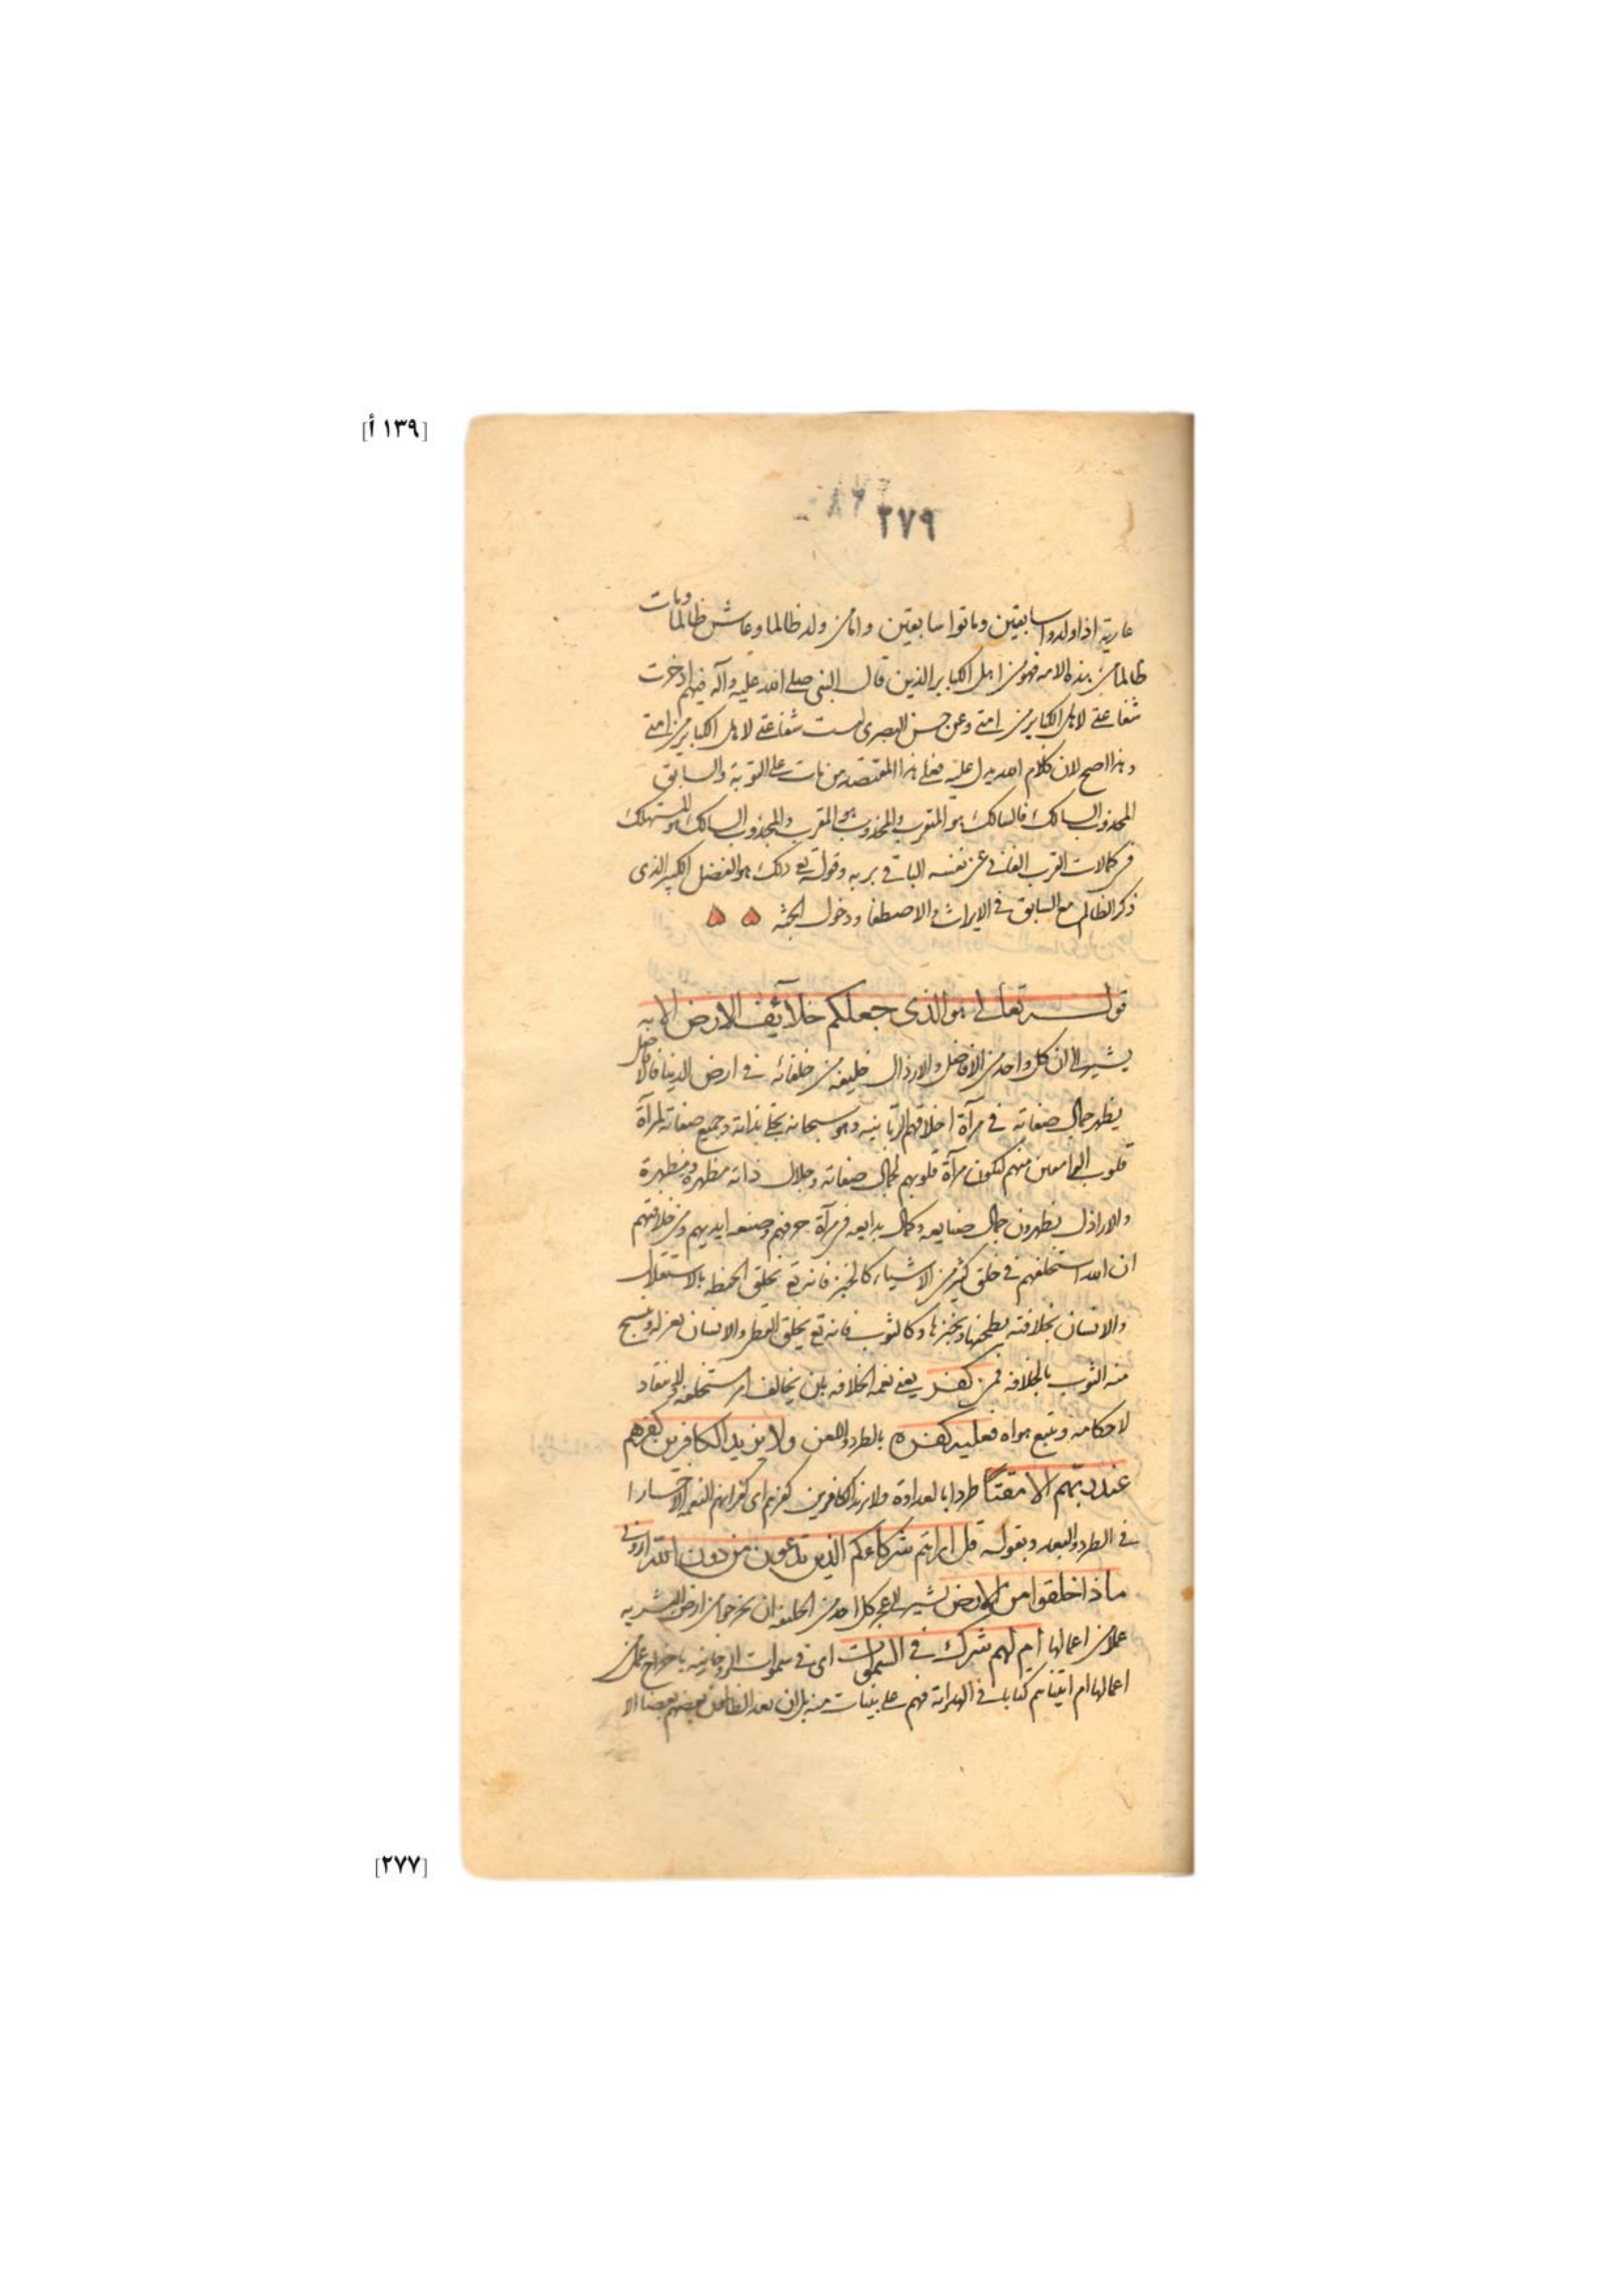 [١٣٩ أ]
٢٧٩
عارية اذا ولدوا سابقين وماتوا سابقين واما من ولد ظالما وعاش ظالما ومات
ظالما من هذه الامة فهو من اهل الكباير الذين قال النبى صلى الله عليه وآله فيهم ادخرت
شفاعتى لاهل الكباير من امتى وعن حسن البصرى ليست شفاعتى لاهل الكباير من امتى
وهذا اصح لان كلام الله يدل عليه فعلى هذا المقتصد من مات على التوبة والسابق
المجذوب السالك فالسالك هو المتقرب والمجذوب هو المقرب والمجذوب السالك هو المستهلك
فى كمالات القرب الفانى عن نفسه الباقى بربه وقوله تع ذلك هو الفضل الكبير الذى
ذكر الظالم مع السابق فى الايراث والاصطفا ودخول الجنة
قوله تعالى هو الذى جعلكم خلآئف الارض الايه
يشير الى ان كل واحد من الافاضل والارذال خليفة من خلفائه فى ارض الدنيا فالافاضل
يظهر جمال صفاته فى مرآة اخلاقهم الربانية وهو سبحانه تجلى بذاته وجميع صفاته لمرآة
قلوب منهم لتكون مرآة قلوبهم لجمال صفاته وجلال ذاته مظهرة ومظهرة
والاراذل يظهرون جمال صنايعه وكمال بدايعه فى مرآة حرفهم وصنعة ايديهم ومن خلافتهم
ان الله استخلفهم فى خلق كثير من الاشياء كالخبز فانه تع يخلق الحنطة بالاستقلال
والانسان بخلافته يطحنها ويخبزها وكالثوب فانه تع يخلق القطن والانسان يغزله وينسج
منه الثوب بالخلافة فمن كفر يعنى نعمة الخلافة بان يخالف امر مستخلفه ولا ينقاد
لاحكامه ويتبع هواه فعليه كفره بالطرد واللعن ولا يزيد الكافرين كفرهم
عند ربهم الا مقتا طردا بالعداوة ولا يزيد الكافرين كفرهم اى كفرانهم النعمة الا خسارا
فى الطرد والبعد وبقوله قل ارايتم شركاءكم الذين تدعون من دون الله ارونى
ماذا خلقوا من الارض يشير الى عجز كل احد من الخليفة ان يخرجوا من ارض البشرية
عملا من اعمالها ام لهم شرك فى السموات اى فى سموات الروحانية باخراج عمل من
اعمالها ام آتيناهم كتابا فى الهداية فهم على بينات منه بل ان يعد الظالمون بعضهم بعضا الا
[٢٧٧]